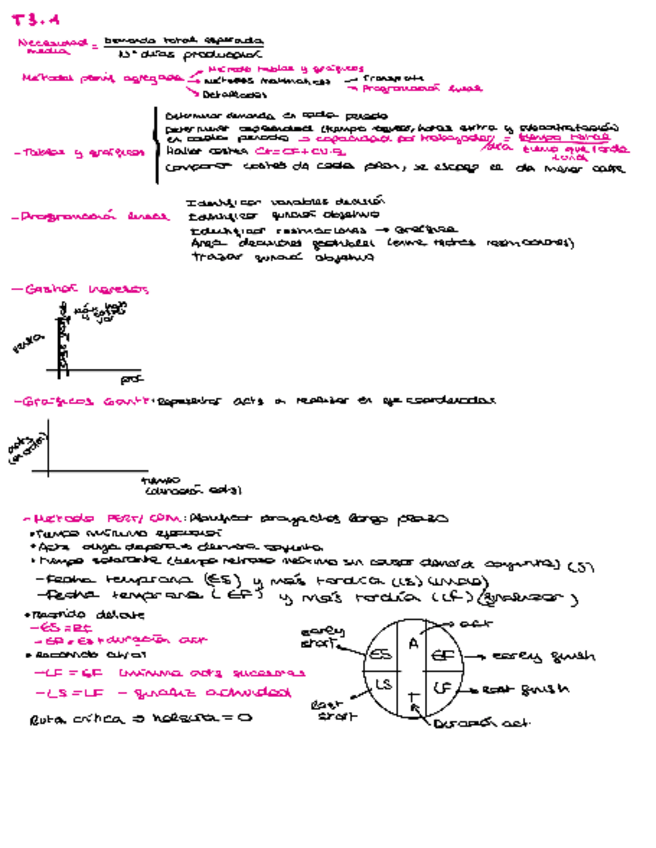 T3.1
Necesidad media = Demanda total esperada / Nº días producción
Métodos planif agregada → Método tablas y gráficos
→ Métodos matemáticos → Transporte
→ Programación lineal
→ Detallados
- Tablas y gráficos
Determinar demanda en cada periodo
Determinar capacidad (tiempo horas extra y subcontratación)
en cada periodo → capacidad por trabajador/día = tiempo total / tiempo que tarda 1 und
Hallar costes CT=CF+CU·Q
Comparar costes de cada plan, se escoge el de menor coste
- Programación lineal
Identificar variables decisión
Identificar función objetivo
Identificar restricciones → Gráfica
Área decisiones posibles (entre rectas restricciones)
Trazar función objetivo
- Gantt
prof
- Gráficos Gantt: Representar acts a realizar en eje coordenadas
acts
tiempo
(duración acts)
- Método PERT/CPM: Planificar proyectos largo plazo
• Tiempo mínimo ejecución
• Acts cuya demora conjunto
• Tiempo sobrante (tiempo retraso máximo sin causar demora conjunto) (S)
- Fecha temprana (ES) y más tardía (LS) (inicio)
- Fecha temprana (EF) y más tardía (LF) (finalizar)
• Recorrido delante
- ES = EF
- EF = ES + duración act
• Recorrido atrás
- LF = EF (mínimo acts sucesoras
- LS = LF - finaliz actividad
Ruta crítica ⇒ holgura = 0
early start
ES
A
act
EF
early finish
LS
LF
last finish
last start
T
Duración act.